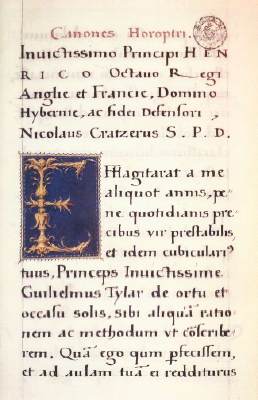 Canones Horoptri.
Inuictissimo Principi HEN
RICO Octauo Regi
Anglie et Francie, Domino
Hybernie, ac fidei Defensori,
Nicolaus Cratzerus S. P. D.
EFflagitarat a me
aliquot annis, pe-
ne quotidianis pre
cibus vir prestabilis,
et idem cubiculari9
tuus, Princeps Inuictissime
Guilhelmus Tylar de ortu et
occasu solis, sibi aliquā ratio
nem ac methodum vt cōscribe
rem. Quā ego qum pfecissem,
et ad aulam tuā ei redditurus